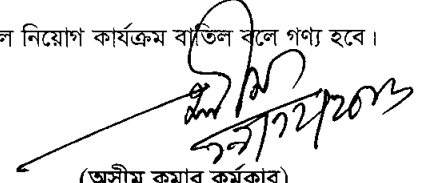 ল নিয়োগ কার্যক্রম বাতিল বলে গণ্য হবে।
(অসীম কুমার কর্মকার)